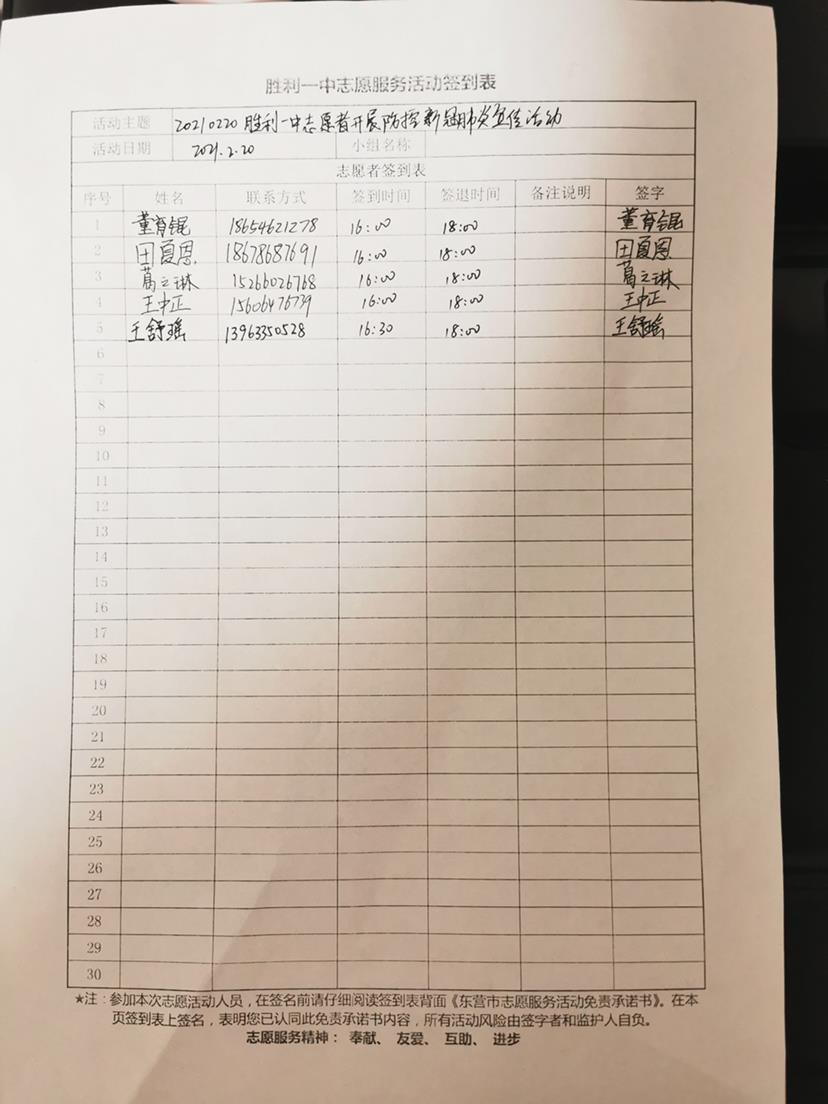 胜利一中志愿服务活动签到表
活动主题 20210220胜利一中志愿者开展防控新冠肺炎宣传活动
活动日期 2021.2.20 小组名称
志愿者签到表
序号 姓名 联系方式 签到时间 签退时间 备注说明 签字
1 董育锟 18654621278 16:00 18:00 董育锟
2 田夏恩 18678687691 16:00 18:00 田夏恩
3 葛立琳 15266026768 16:00 18:00 葛立琳
4 王中正 15606476739 16:00 18:00 王中正
5 王舒瑶 13963350528 16:30 18:00 王舒瑶
6
7
8
9
10
11
12
13
14
15
16
17
18
19
20
21
22
23
24
25
26
27
28
29
30
★注：参加本次志愿活动人员，在签名前请仔细阅读签到表背面《东营市志愿服务活动免责承诺书》。在本
页签到表上签名，表明您已认同此免责承诺书内容，所有活动风险由签字者和监护人自负。
志愿服务精神： 奉献、 友爱、 互助、 进步